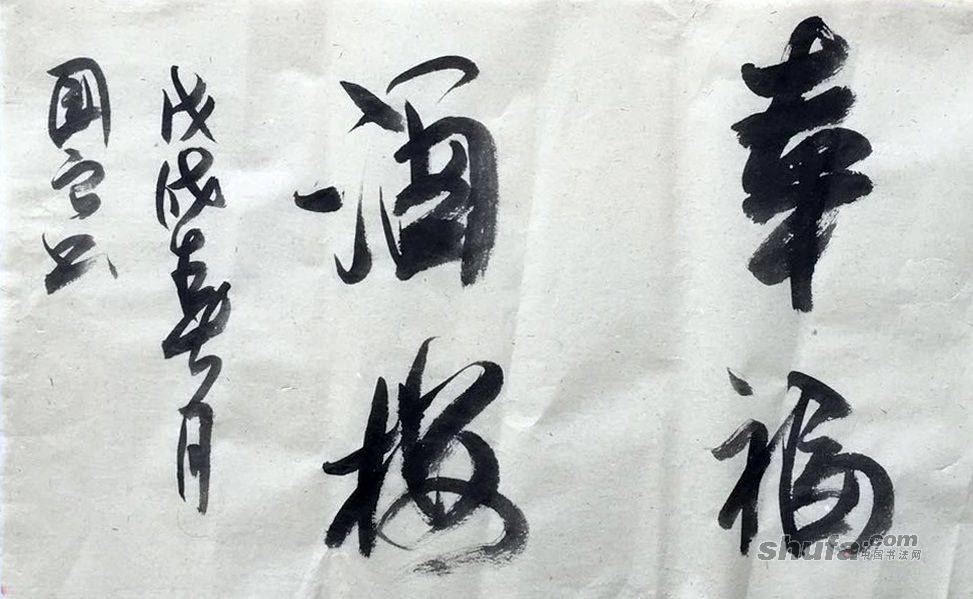 幸福
酒楼
戊戌春月
国 书
shufa.com
中国书法网